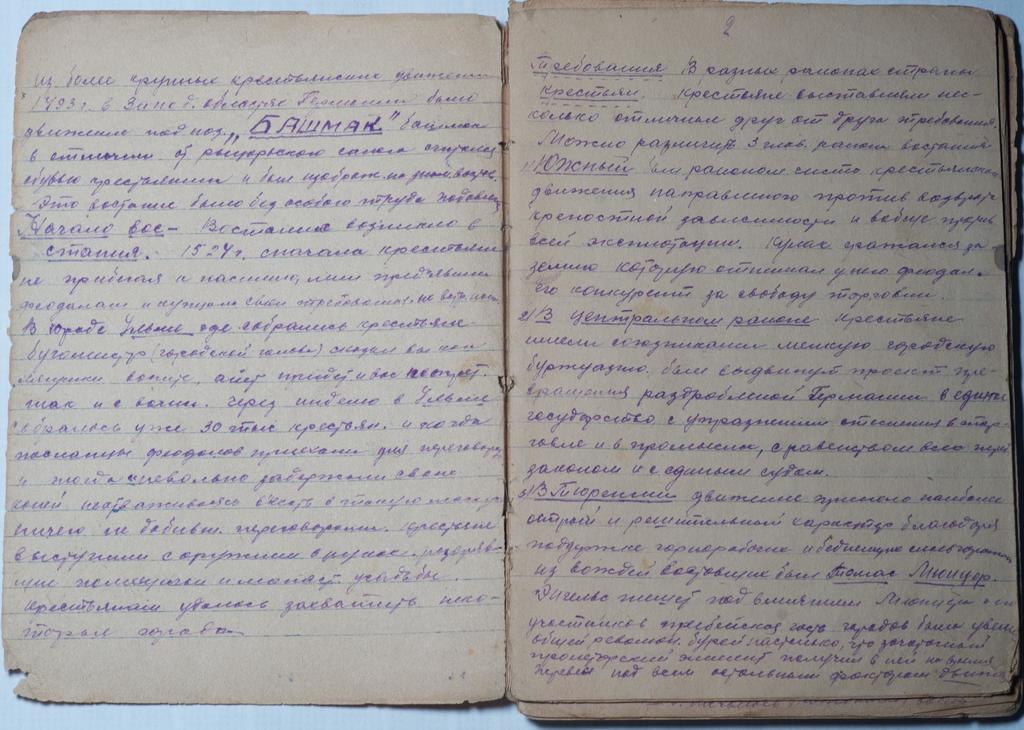 Из более крупных крестьянских движений
1493 г. в Запод. областях Германии было
движение под наз. „БАШМАК" башмак
в отличии от рыцарьского сапога считался
обувью крестьянини и был изображ. на
Это востание было без особого труда подавлен
Начало вос- Востание возникло в
стания. 1524 г. сначала крестьяни
не прибегая к насилию, предъявили
феодалам и купцам свои требования
В городе Ульме где собрались крестьяне
бугомистр (городской голова) сказал вы как
лягушки весною, аист придет и вас
так и с вами. Через неделю в Ульме
собралось уже 30 тыс крестьян. и когда
посланцы феодолов приехали для переговоров
и тогда невольно задержали своих
коней
ничего не добивши. переговорами. Крестьяне
выступили с оружием в руках.
щие помещичьи и усадьбы.
Крестьянам удалось захватить неко-
торые города
2
Требования В разных районах страны
крестьян. Крестьяне выставляли не-
сколько отличные друг от друга требования.
Можно различить 3 глав. район востания
1) Южный был районом чисто крестьянского
движения направленного против
крепостной зависимости и вобще против
всей эксплотации. Кулак сражался за
землю которую отнимал у него феодал.
его конкурент за свободу торговли.
2) В центральном районе крестьяне
имели союзниками мелкую городскую
буржуазию. был выдвинут проект пре-
вращения раздробленой Германии в единое
государство с упразнением стеснения в тор-
говле и в промыслах, с равенством всех перед
законом и с единым судом.
3) В Тюрингии движение приняло наиболее
острый и решительный характер благодаря
поддержке горнорабочих и беднейших
из вождей востовших был Томас Мюнцер.
Энгельс пишет под влиянием Мюнцера
участников плебейская часть городов была увлечена
общей револю. бурей настолько, что зачаточный
пролетарский элемент получил в ней на время
перевес под всем остальными факторам движ.